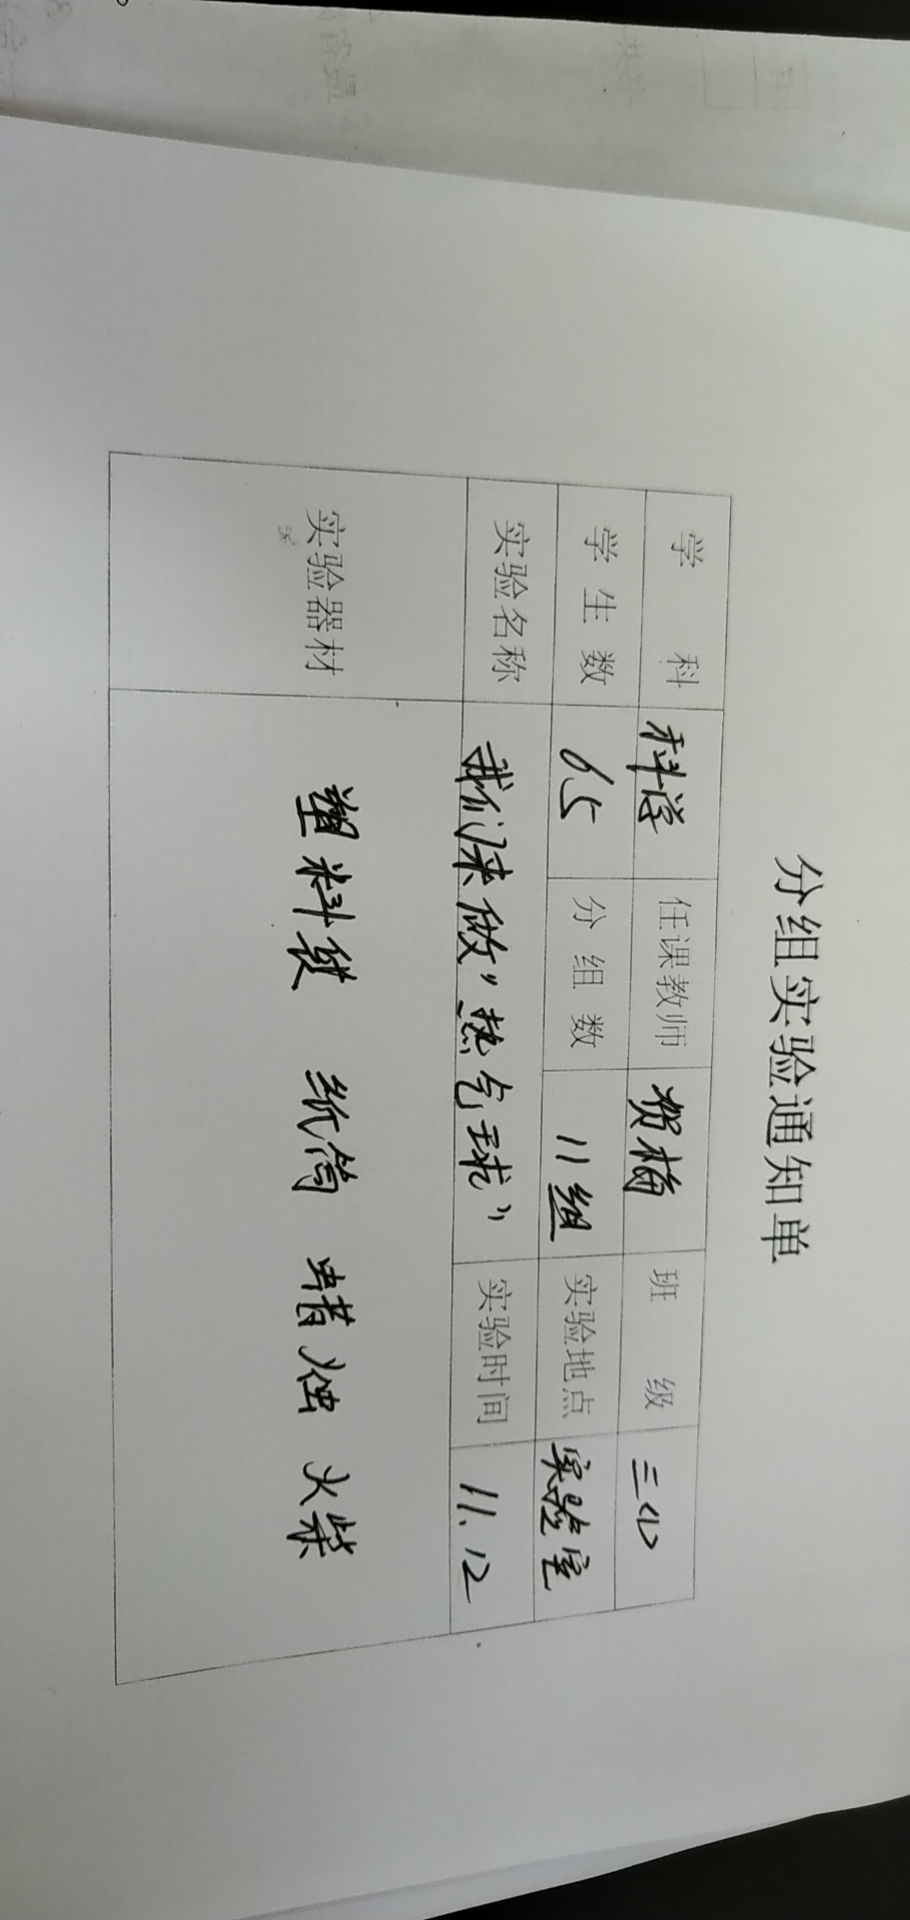 分组实验通知单
学 科 科学 任课教师 贺梅 班 级 三(1)
学生数 65 分组数 11组 实验地点 实验室
实验名称 我们来做"热气球" 实验时间 11.12
实验器材 塑料袋 纸筒 蜡烛 火柴